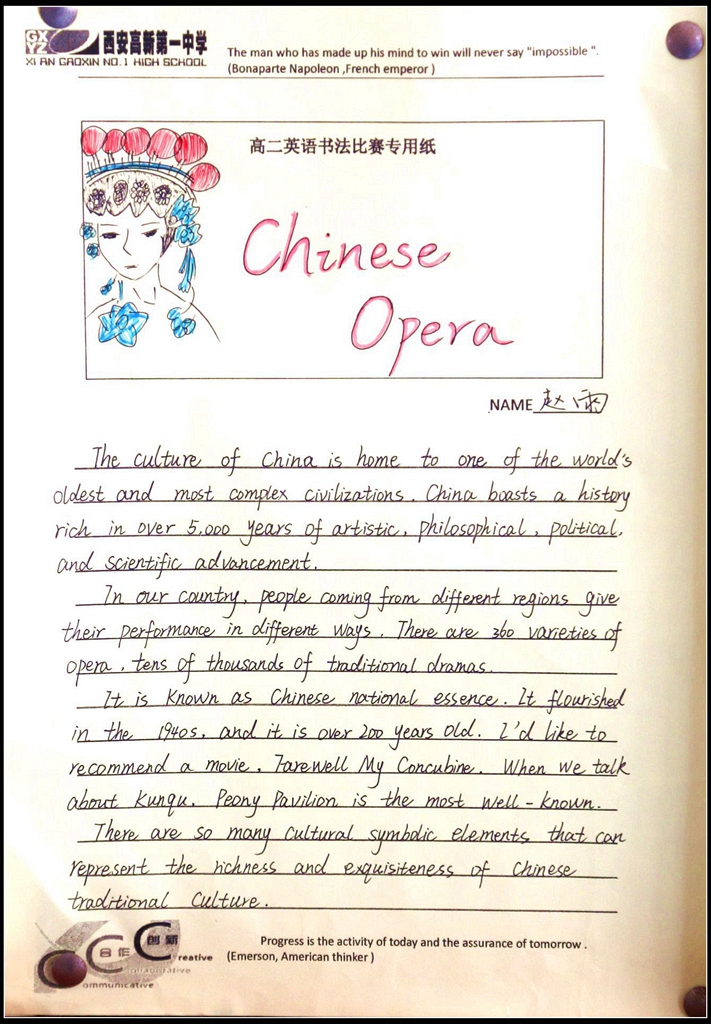 GX
YZ
西安高新第一中学
XI AN GAOXIN NO.1 HIGH SCHOOL
The man who has made up his mind to win will never say "impossible ".
(Bonaparte Napoleon ,French emperor )
高二英语书法比赛专用纸
Chinese
Opera
NAME 赵雨
The culture of China is home to one of the world's
oldest and most complex civilizations. China boasts a history
rich in over 5,000 years of artistic, philosophical, political,
and scientific advancement.
In our country, people coming from different regions give
their performance in different ways. There are 360 varieties of
opera, tens of thousands of traditional dramas.
It is known as Chinese national essence. It flourished
in the 1940s, and it is over 200 years old. I'd like to
recommend a movie, Farewell My Concubine. When we talk
about Kunqu, Peony Pavilion is the most well-known.
There are so many cultural symbolic elements that can
represent the richness and exquisiteness of Chinese
traditional culture.
合作 创新
Creative
Collaborative
Communicative
Progress is the activity of today and the assurance of tomorrow .
(Emerson, American thinker )